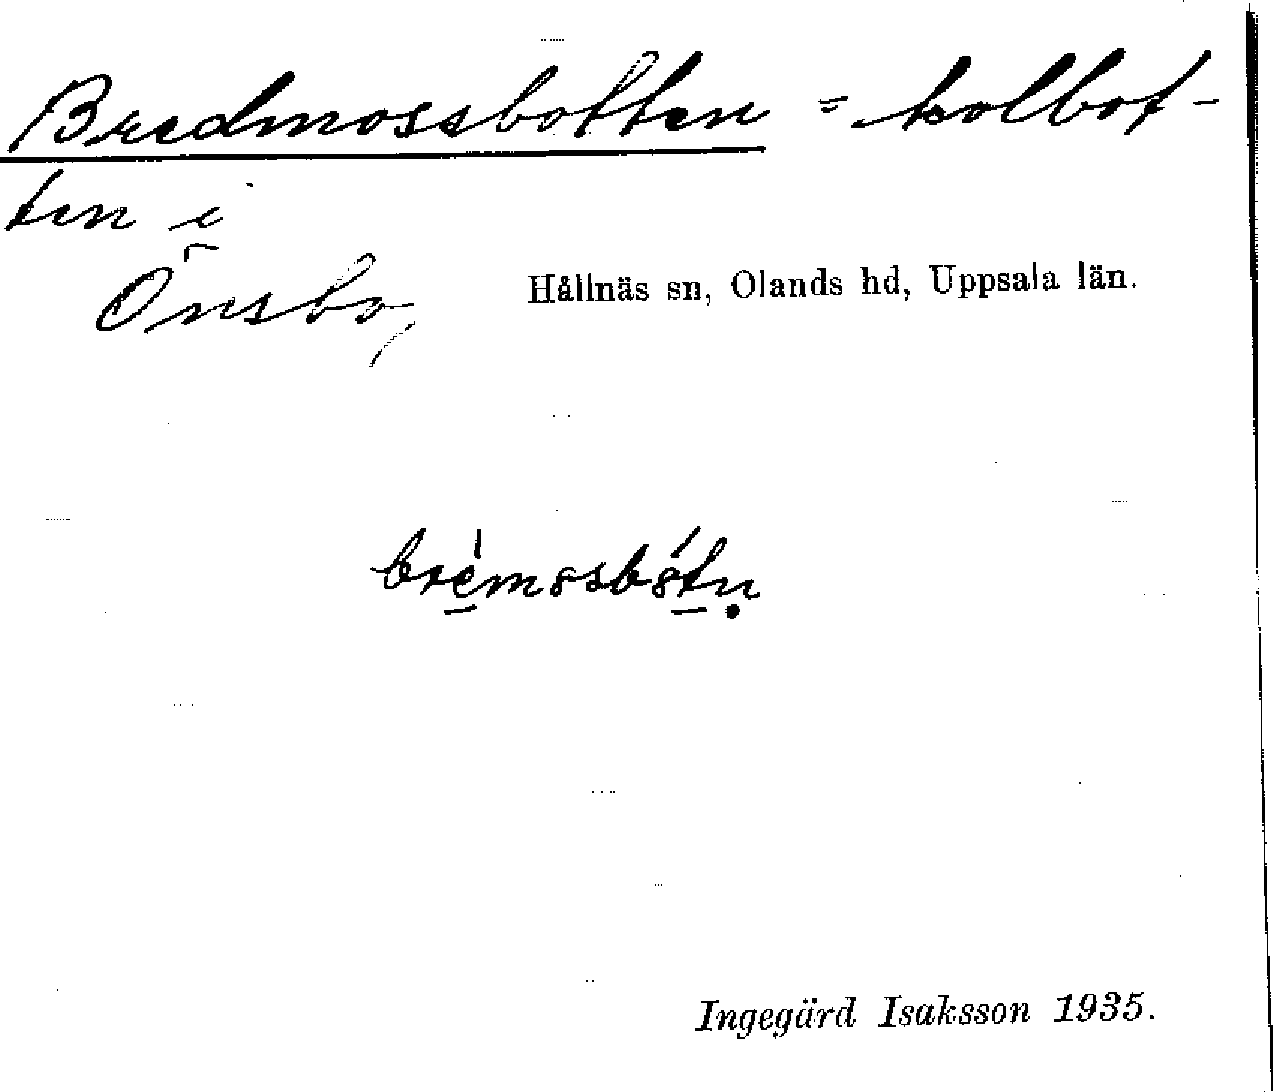 Bredmossbotten = kolbot-
ten i
Önsbo, Hållnäs sn, Olands hd, Uppsala län.
bre̱̍mssbó̱tṇ
Ingegärd Isaksson 1935.